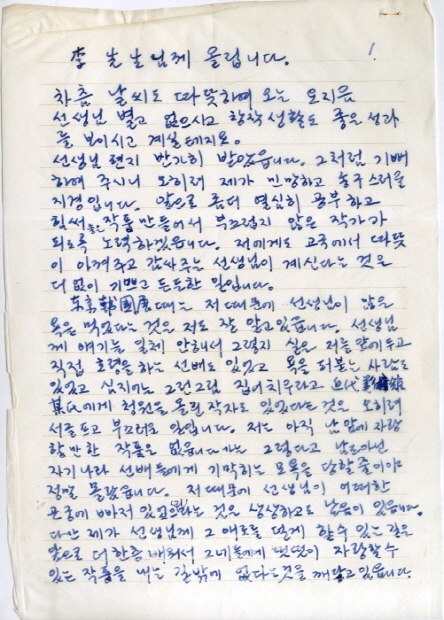 李 선생님께 올립니다.
1.
차츰 날씨도 따뜻하여 오는 요지음
선생님 별고 없으시고 창작생활도 좋은 성과
를 보이시고 계실테지요.
선생님 편지 반가히 받았읍니다. 그처럼 기뻐
하여 주시니 오히려 제가 민망하고 송구스러울
지경입니다. 앞으로 좀더 열심히 공부하고
힘써 좋은 작품 만들어서 부끄럽지 않은 작가가
되도록 노력하겠읍니다. 저에게도 고국에서 따뜻
이 아껴주고 감싸주는 선생님이 계신다는 것은
더 없이 기쁘고 든든한 일입니다.
东京韓國展 때는 저 때문에 선생님이 많은
욕을 먹었다는 것은 저도 잘 알고 있읍니다. 선생님
께 얘기는 일체 안해서 그렇지 실은 저를 앞에두고
직접 호령을 하는 선배도 있었고 욕을 퍼붇는 사람도
있었고 심지어는 그런그림 집어치우라고 近代
某氏에게 청원을 올린 작자도 있었다는 것은 오히려
서글프고 부끄러운 일입니다. 저는 아직 남 앞에 자랑
할 만한 작품은 없읍니다마는 그렇다고 남도아닌
자기나라 선배들에게 기막히는 모욕을 당할 줄이야
정말 몰랐읍니다. 저 때문에 선생님이 어떠한
곤궁에 빠저 있었으리라는 것은 상상하고도 남음이 있읍니다.
다만 제가 선생님께 그 애로를 덜게 할수 있는 길은
앞으로 더 한층 배워서 그네들에게 떳떳이 자랑할수
있는 작품을 내는 길밖에 없다는것을 깨닫고 있읍니다.